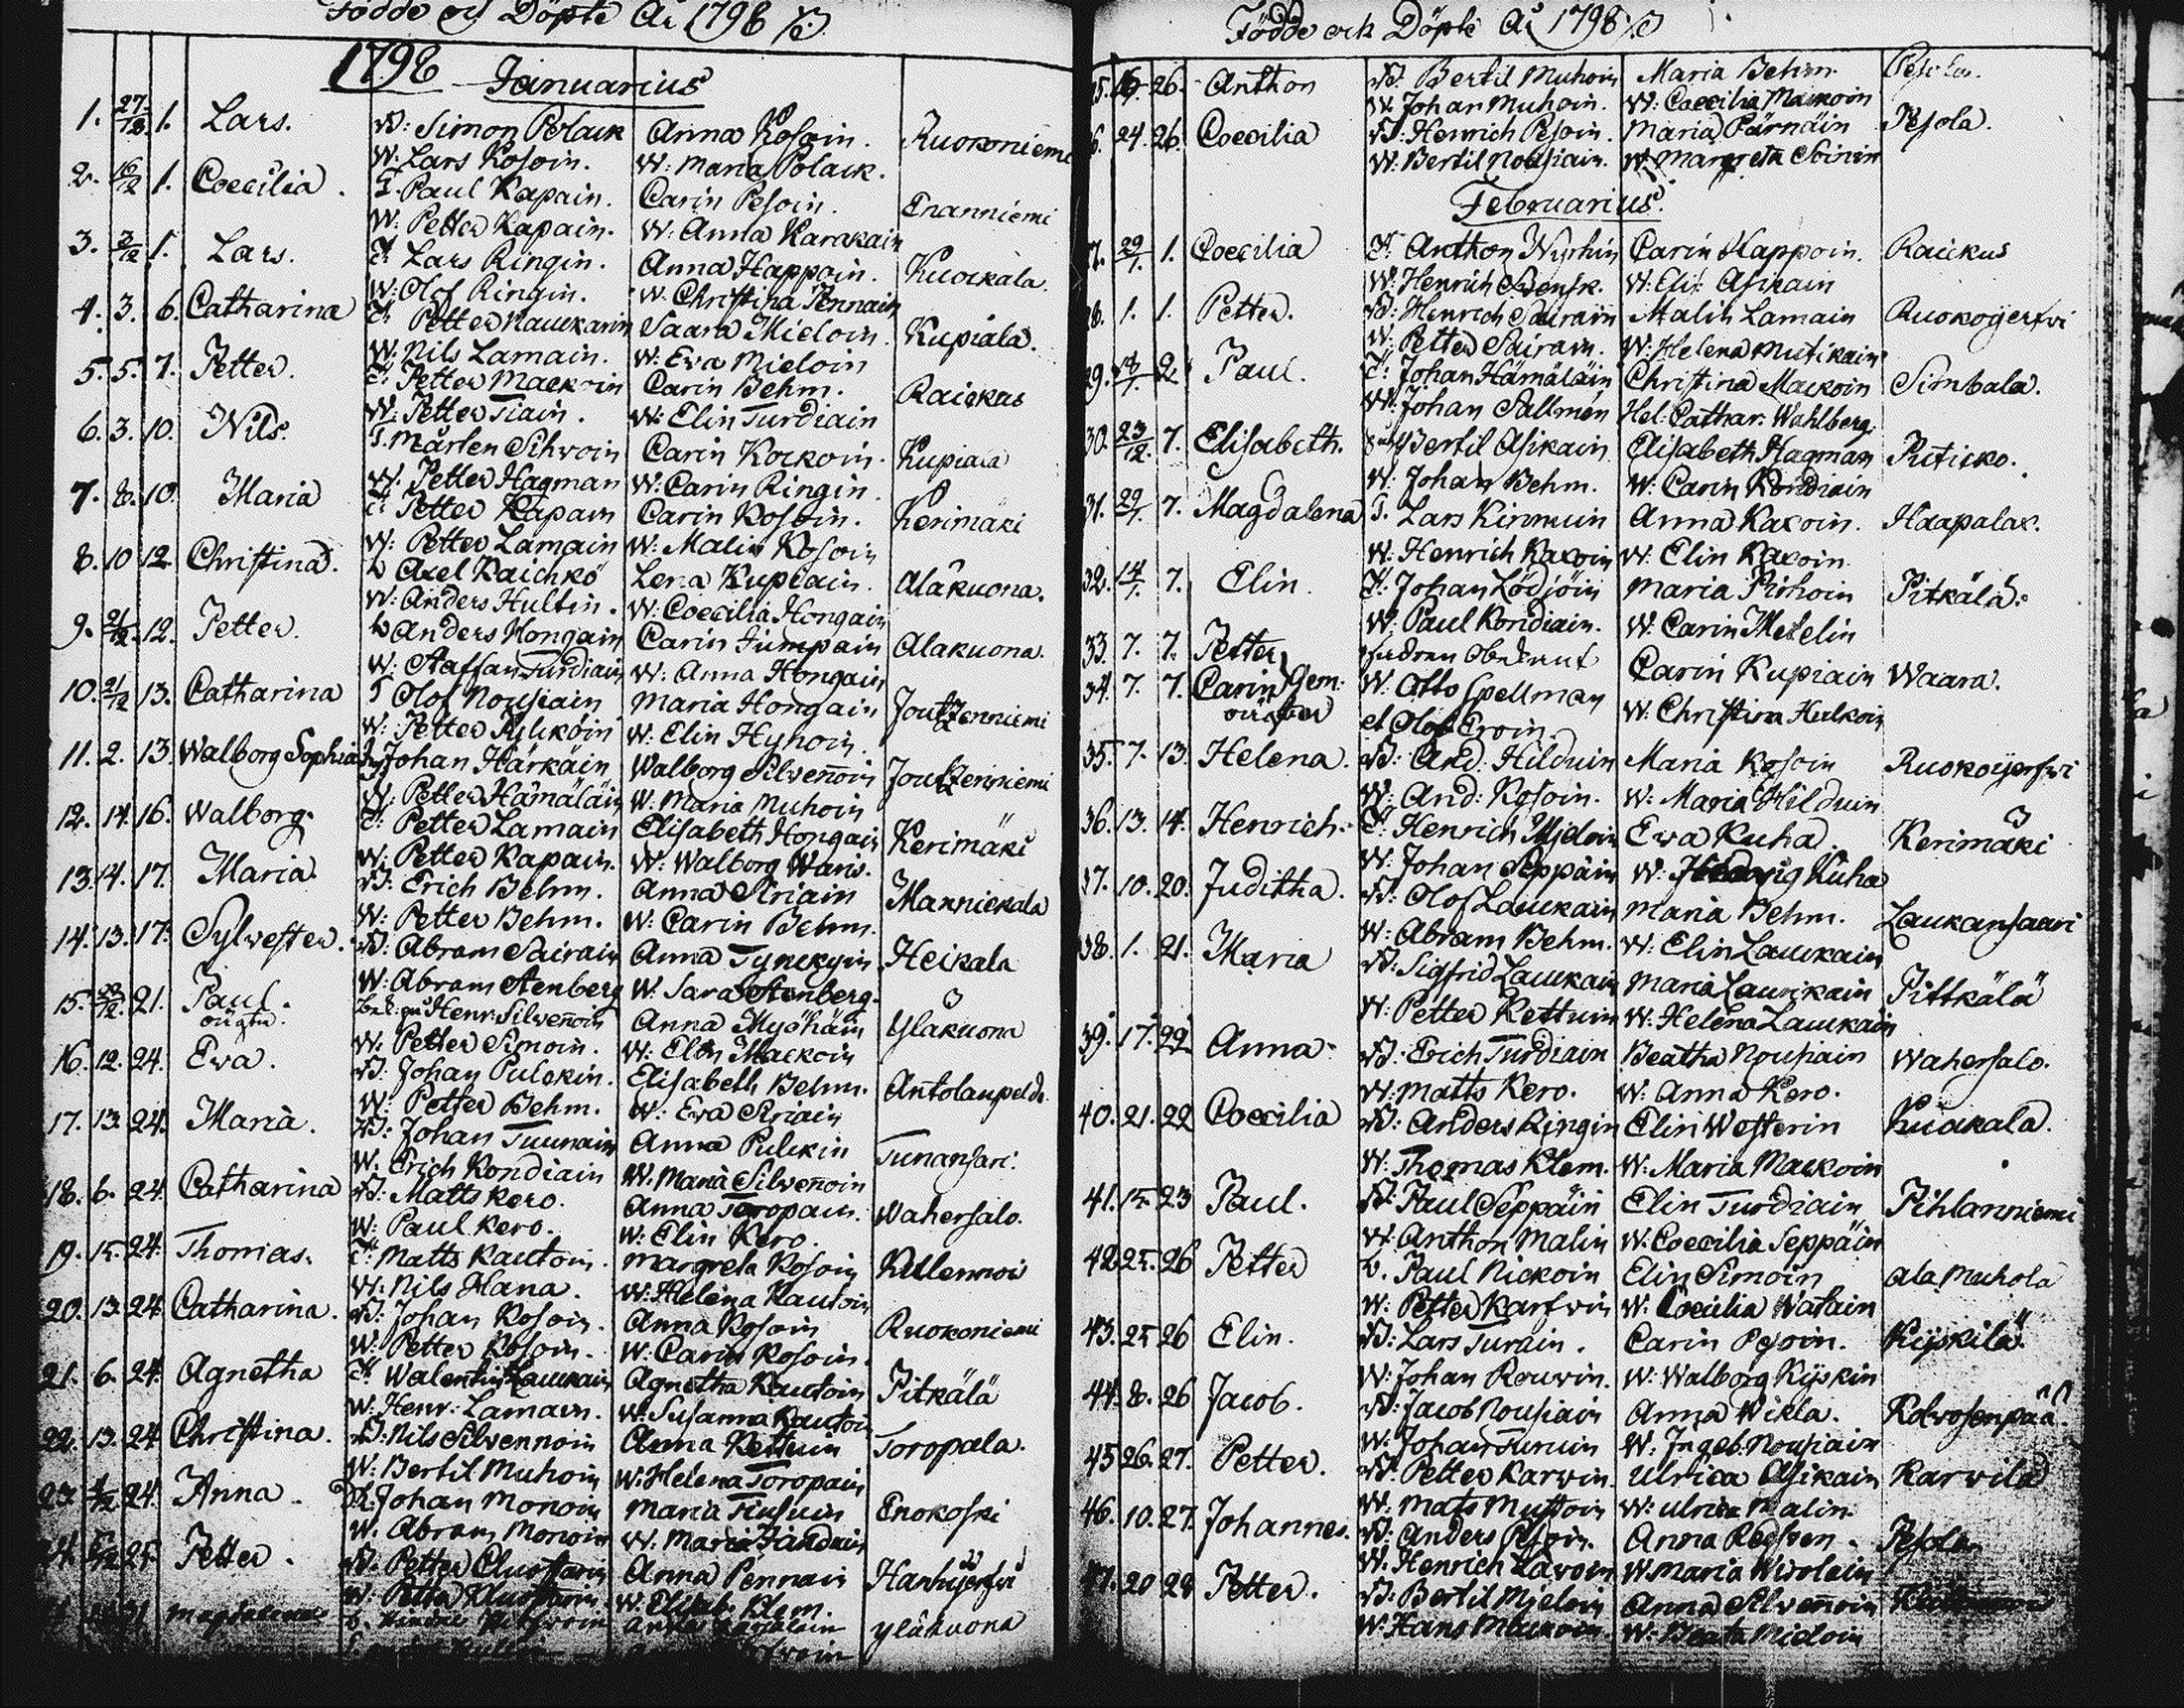 Födde och Döpte År 1798
1798 Januarius
1. 27/12 1. Lars. B: Simon Polack Anna Kosoin. Ruokoniemi
W: Lars Kosoin. W: Maria Polack.
2. 16/12 1. Coecilia. T. Paul Kapain. Carin Pesoin. Enanniemi
W: Petter Kapain. W: Anna Karakain
3. 1. Lars. T. Lars Ringin. Anna Happoin. Kuockala.
W: Olof Ringin. W: Christina Pennain
4. 3. 6. Catharina T. Petter Nauckarin Saara Mieloin. Kupiala.
W: Nils Lamain. W: Eva Mieloin
5. 5. 7. Petter. T. Petter Mackoin Carin Behm. Raickus
W: Petter Tiain. W: Elin Turdiain
6. 3. 10. Nils. T. Mårten Sihvoin Carin Kockoin. Kupiala
W: Petter Hagman W: Carin Ringin.
7. 8. 10. Maria T. Petter Kapain Carin Kosoin. Kerimäki
W: Petter Lamain W: Malin Kosoin
8. 10 12 Christina. L Axel Kaichkö Lena Kupiain. Alakuona.
W: Anders Hultin. W: Coecilia Hongain
9. 12. Petter. L Anders Hongain Carin Jumpain Alakuona.
W: Staffan Turdiain W: Anna Hongain
10. 21/12 13. Catharina T Olof Nousiain Maria Hongain Joutzenniemi
W: Petter Pylköin W: Elin Hyhoin.
11. 2. 13. Walborg Sophia Johan Härkäin Walborg Silvenoin Joutzenniemi
W: Petter Hämäläin W: Maria Muhoin
12. 14. 16. Walborg. T: Petter Lamain Elisabeth Hongain Kerimäki
W: Petter Kapain. W: Walborg Waris.
13. 14. 17. Maria. B: Erich Behm. Anna Siriain Mannickala
W: Petter Behm. W: Carin Behm.
14. 13. 17. Sylvester. B: Abram Sairain Anna Tynckyin Heikala
W: Abram Stenberg W: Sara Stenberg.
15. 21. Paul. Henr: Silvenoin Anna Myöhäin Ylakuona
oügta. W: Petter Simoin. W: Elin Mackoin
16. 12. 24. Ewa. B: Johan Pulckin. Elisabeth Behm. Antolanpeldo.
W: Petter Behm. W: Eva Siriain
17. 13. 24. Maria. B: Johan Tuunain Anna Pulckin Tunansari.
W: Erich Kondiain W: Maria Silvenoin
18. 6. 24. Catharina B: Matts Kero. Anna Toropain. Wahersalo.
W: Paul Kero. W: Elin Kero.
19. 15. 24. Thomas. T. Matts Kautoin. Margreta Kosoin
W: Nils Hana. W: Helena Kautoin
20. 13. 24. Catharina. B: Johan Kosoin. Anna Kosoin Ruokoniemi
W: Petter Kosoin. W: Carin Kosoin.
21. 6. 24. Agnetha T. Walentin Lauckain Agnetha Kautoin Pitkälä
W: Henr: Lamain. W: Susanna Kautoin
22. 13. 24 Christina. B: Nils Silvennoin Anna Kettuin Toropala.
W: Bertil Muhoin W: Helena Toropain
23. 24. Anna. Johan Monoin Maria Enokoski
W. Abram Monoin W: Maria
24. 25. Petter. B: Petter Anna Pennain
W: Petter W: Elisab: Klem.
Magdalena Ylåkuona
Födde och Döpte År 1798
25. 26. Anthon B. Bertil Muhoin Maria Behm. Pesola.
W: Johan Muhoin. W: Coecilia Mackoin
26. 24. 26. Coecilia B: Henrich Pesoin. Maria Pärnäin Pesola.
W: Bertil Nousiain. W: Margreta Soinin
Februarius.
27. 29/1. 1. Coecilia T. Anthon Nyrhin Carin Happoin. Raickus
W: Henrich Svensk. W: Eli: Asikain
28. 1. 1. Petter. B: Henrich Sairain Malin Lamain Ruokojerfvi
W: Petter Sairain. W: Helena Mutikain
29. 2. Paul. T: Johan Hämäläin Christina Mackoin Simbala.
W: Johan Sallmén Hel: Cathar: Wahlberg.
30. 23/12. 7. Elisabeth. Bertil Asikain Elisabeth Hagman Puticko.
W: Johan Behm. W: Carin Kondiain
31. 29/1. 7. Magdalena T. Lars Kinnuin Anna Kaxoin. Haapalax.
W: Henrich Kaxoin W: Elin Kaxoin
32. 14/1. 7. Elin. T: Johan Lödjöin Maria Pirhoin Pitkälä.
W: Paul Kondiain. W: Carin Metelin
33. 7. 7. Petter Carin Kupiain Waara.
34. 7. 7. Carin Gem: W: Otto Spellman W: Christina Hulkoin
oügta et Olof Eroin.
35. 7. 13. Helena. B: And: Hilduin Maria Kosoin Ruokojerfvi
W: And: Kosoin. W: Maria Hilduin
36. 13. 14. Henrich. T: Henrich Mjeloin Ewa Kuha. Kerimäki
W: Johan Seppäin W: Hedwig Kuha
37. 10. 20. Juditha. B: Olof Lauckain Maria Behm. Laukansaari
W: Abram Behm. W: Elin Lauckain
38. 1. 21. Maria B: Sigfrid Lauckain Maria Lauckain Pittkälä
W: Petter Kettuin W: Helena Lauckain
39. 17. 22 Anna. B: Erich Turdiain Beatha Nousiain Wahersalo.
W: Matts Kero. W: Anna Kero.
40. 21. 22 Coecilia B: Anders Ringin Elin Westerin Kuokala.
W: Thomas Klem. W: Maria Mackoin
41. 15. 23 Paul. B: Paul Seppäin Elin Turdiain Pihlanniemi
W: Anthon Malin W: Coecilia Seppäin
42. 25. 26 Petter L. Paul Nickoin Elin Simoin Ala Muhola
W: Petter Karfvin W: Coecilia Watain
43. 25 26 Elin. B: Lars Turain. Carin Pesoin. Kyskilä.
W: Johan Rouvin. W: Walborg Kyskin
44. 8. 26 Jacob. B: Jacob Nousiain Anna Wikla.
W: Johan Turuin W: Ingeb: Nousiain
45 26. 27. Petter. B: Petter Karvin. Ulrica Asikain Karvila
W: Mats Mustoin W: Ulrica Malin.
46. 10. 27. Johannes. B: Anders Pesoin. Anna Pesola
W: Henrich Lavoin W: Maria
47. 20 28 Petter. B: Bertil Mjeloin Anna Silvenoin
W: Hans Mackoin. W: Beata Mieloin